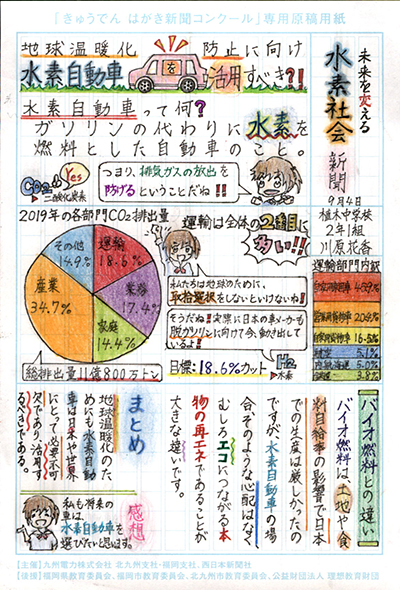 「きゅうでん はがき新聞コンクール」専用原稿用紙
未来を変える
水素社会
新聞
9月4日
植木中学校
2年1組
川原花香
地球温暖化 防止に向け
水素自動車を活用すべき?!
水素自動車って何?
ガソリンの代わりに水素を
燃料とした自動車のこと。
CO2
二酸化炭素
Yes
つまり、排気ガスの放出を
防げるということだね!!
2019年の各部門CO2排出量
その他
14.9%
運輸
18.6%
業務
17.4%
家庭
14.4%
産業
34.7%
総排出量11億800万トン
運輸は全体の2番目に
多い!!
私たちは地球のために、
取捨選択をしないといけないね!
そうだね!!実際に日本の車メーカーも
脱ガソリンに向けて今、動き出して
いるよ!!
目標:18.6%カット
H2
水素
運輸部門内訳
16.5%
5.1%
5.0%
3.8%
バイオ燃料との違い
バイオ燃料は、土地や食
料自給率の影響で日本
での生産は厳しかったの
ですが、水素自動車の場
合そのような心配はなく、
むしろエコにつながる本
物の再エネであることが
大きな違いです。
まとめ
地球温暖化のた
めにも水素自動
車は日本や世界
にとって必要不可
欠であり、活用す
るべきである。
感想
私も将来の
車は、
水素自動車を
選びたいと思います。
【主催】九州電力株式会社 北九州支社・福岡支社、西日本新聞社
【後援】福岡県教育委員会、福岡市教育委員会、北九州市教育委員会、公益財団法人 理想教育財団